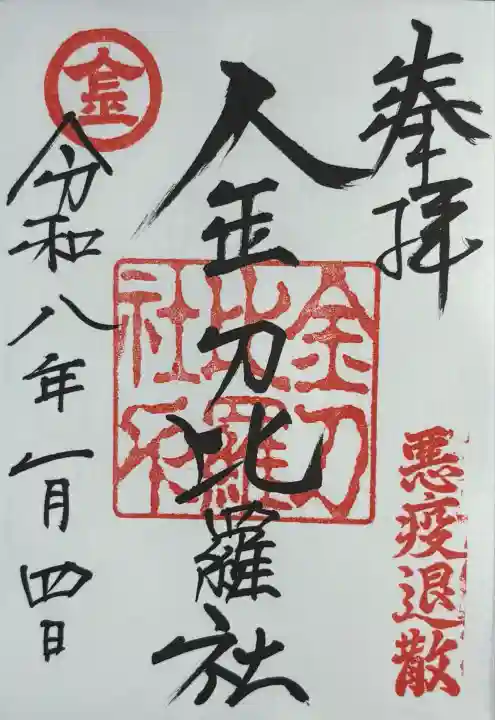 奉拝
悪疫退散
金刀比羅社
金刀
比羅
社
令和八年一月四日
金